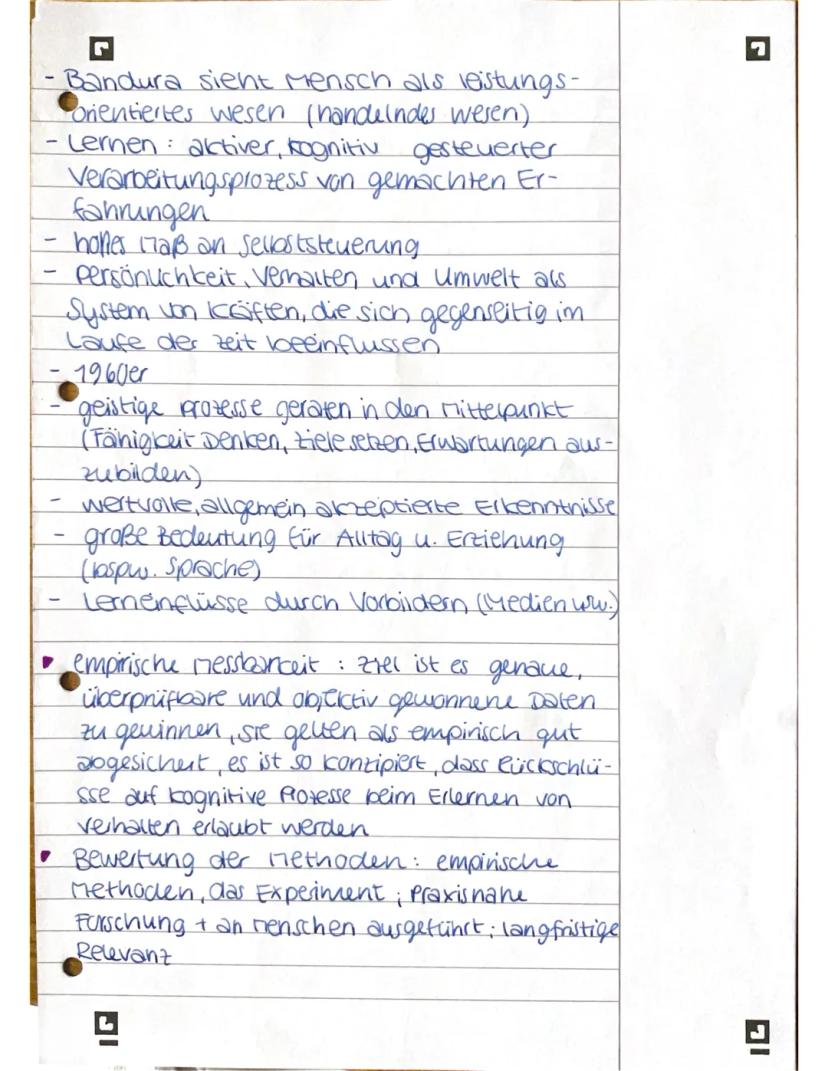 - Bandura sieht Mensch als leistungs-
orientiertes Wesen (handelndes Wesen)
- Lernen: aktiver, kognitiv gesteuerter
Verarbeitungsprozess von gemachten Er-
fahrungen
- hohes Maß an Selbststeuerung
- Persönlichkeit, Verhalten und Umwelt als
System von Kräften, die sich gegenseitig im
Laufe der Zeit beeinflussen
- 1960er
- geistige Prozesse geraten in den Mittelpunkt
(Fähigkeit Denken, Ziele setzen, Erwartungen aus-
zubilden)
- wertvolle, allgemein akzeptierte Erkenntnisse
- große Bedeutung für Alltag u. Erziehung
(bspw. Sprache)
- Lerneinflüsse durch Vorbildern (Medien usw.)
empirische Messbarkeit: Ziel ist es genaue,
überprüfbare und objektiv gewonnene Daten
zu gewinnen, sie gelten als empirisch gut
abgesichert, es ist so konzipiert, dass Rückschlü-
sse auf kognitive Prozesse beim Erlernen von
Verhalten erlaubt werden
Bewertung der Methoden: empirische
Methoden, das Experiment; Praxisnahe
Forschung + an Menschen ausgeführt; langfristige
Relevanz